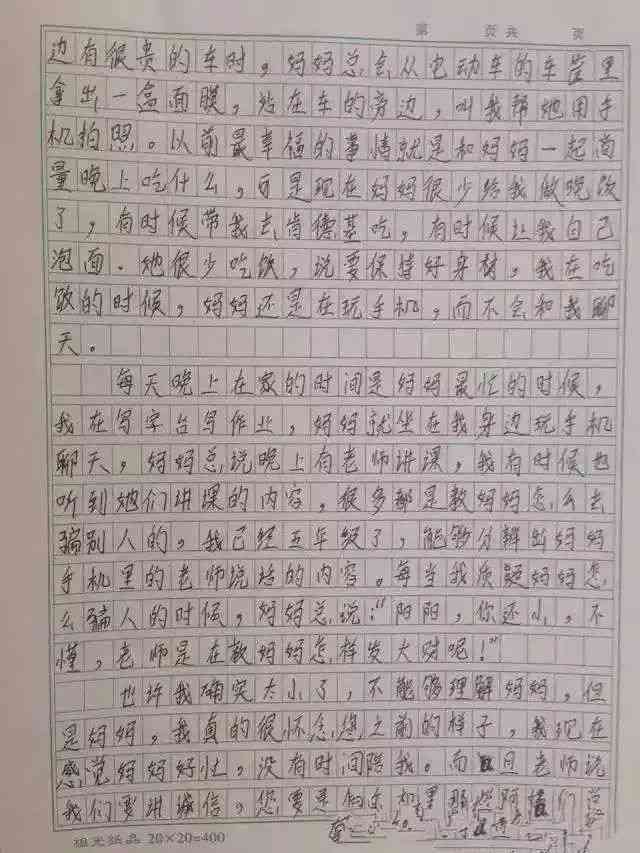 第 页共 页
边有很贵的车时，妈妈总会从电动车的车筐里
拿出一盒面膜，站在车的旁边，叫我帮她用手
机拍照。以前最幸福的事情就是和妈妈一起商
量晚上吃什么，可是现在妈妈很少给我做晚饭
了，有时候带我去肯德基吃，有时候让我自己
泡面。她很少吃饭，说要保持好身材，我在吃
饭的时候，妈妈还是在玩手机，而不会和我聊
天。
每天晚上在家的时间是妈妈最忙的时候，
我在写字台写作业，妈妈就坐在我身边玩手机
聊天，妈妈总说晚上有老师讲课，我有时候也
听到她们讲课的内容，很多都是教妈妈怎么去
骗别人的，我已经五年级了，能够分辨出妈妈
手机里的老师说话的内容。每当我质疑妈妈怎
么骗人的时候，妈妈总说："阳阳，你还小，不
懂，老师是在教妈妈怎样发大财呢！"
也许我确实太小了，不能够理解妈妈，但
是妈妈，我真的很怀念您之前的样子，我现在
感觉妈妈好忙，没有时间陪我。而且老师说
我们要讲诚信，您要是
祖光纸品 20×20=400